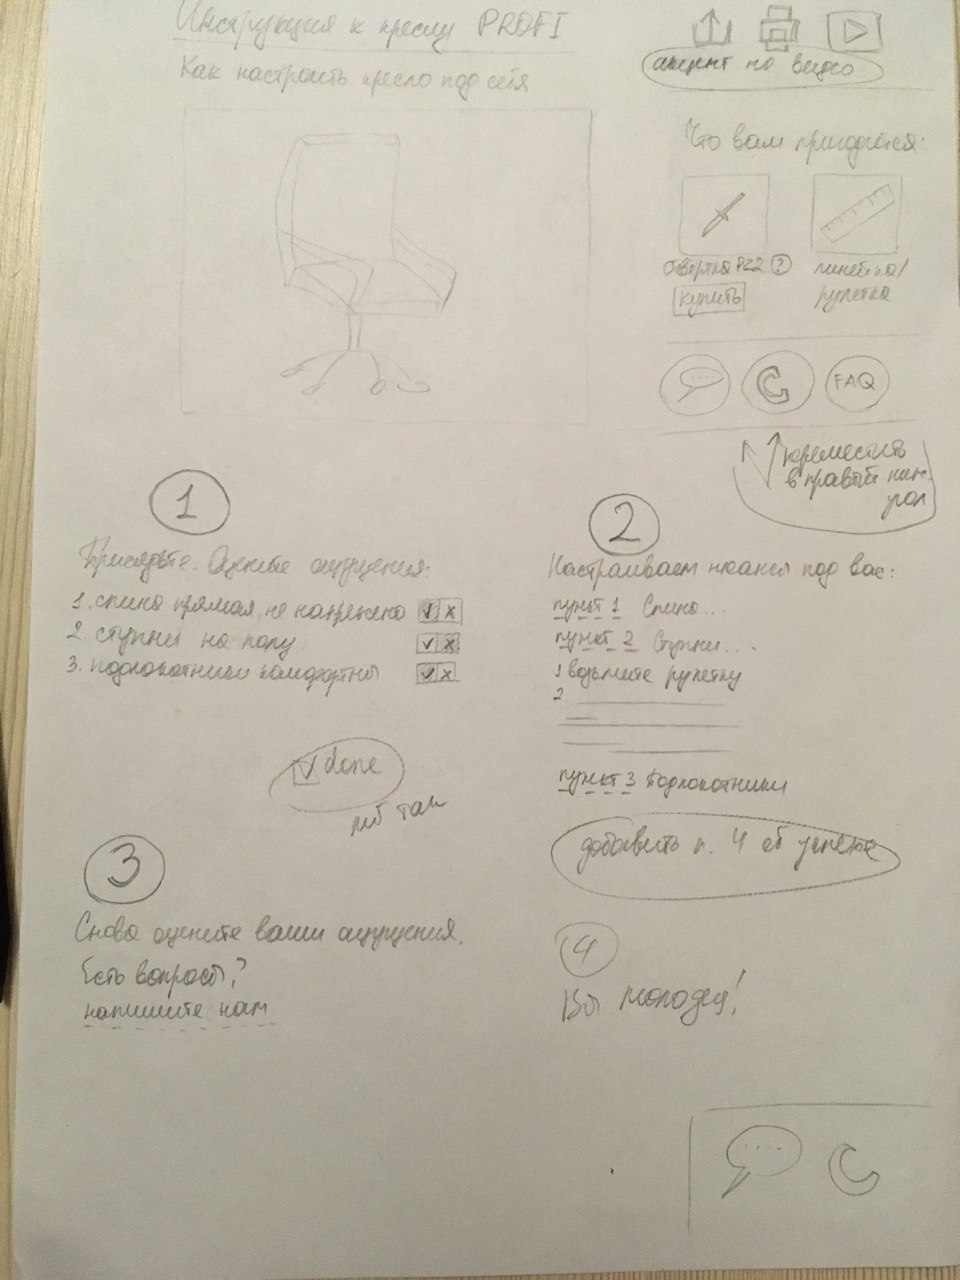 Инструкция к креслу PROFI
Как настроить кресло под себя
акцент на видео
Что вам пригодится:
отвёртка PZ2 ?
купить
линейка/
рулетка
FAQ
переместить
в правый ниж.
угол
1
Присядьте. Оцените ощущения:
1. спина прямая, не напряжена √ x
2 ступни на полу √ x
3. подлокотники комфортны √ x
√ done
мб так
2
Настраиваем нюансы под вас:
пункт 1 Спина...
пункт 2 Ступни....
1 возьмите рулетку
2
пункт 3 Подлокотники
добавить п. 4 об успехе
3
Снова оцените ваши ощущения.
Есть вопросы?
напишите нам
4
Вы молодец!